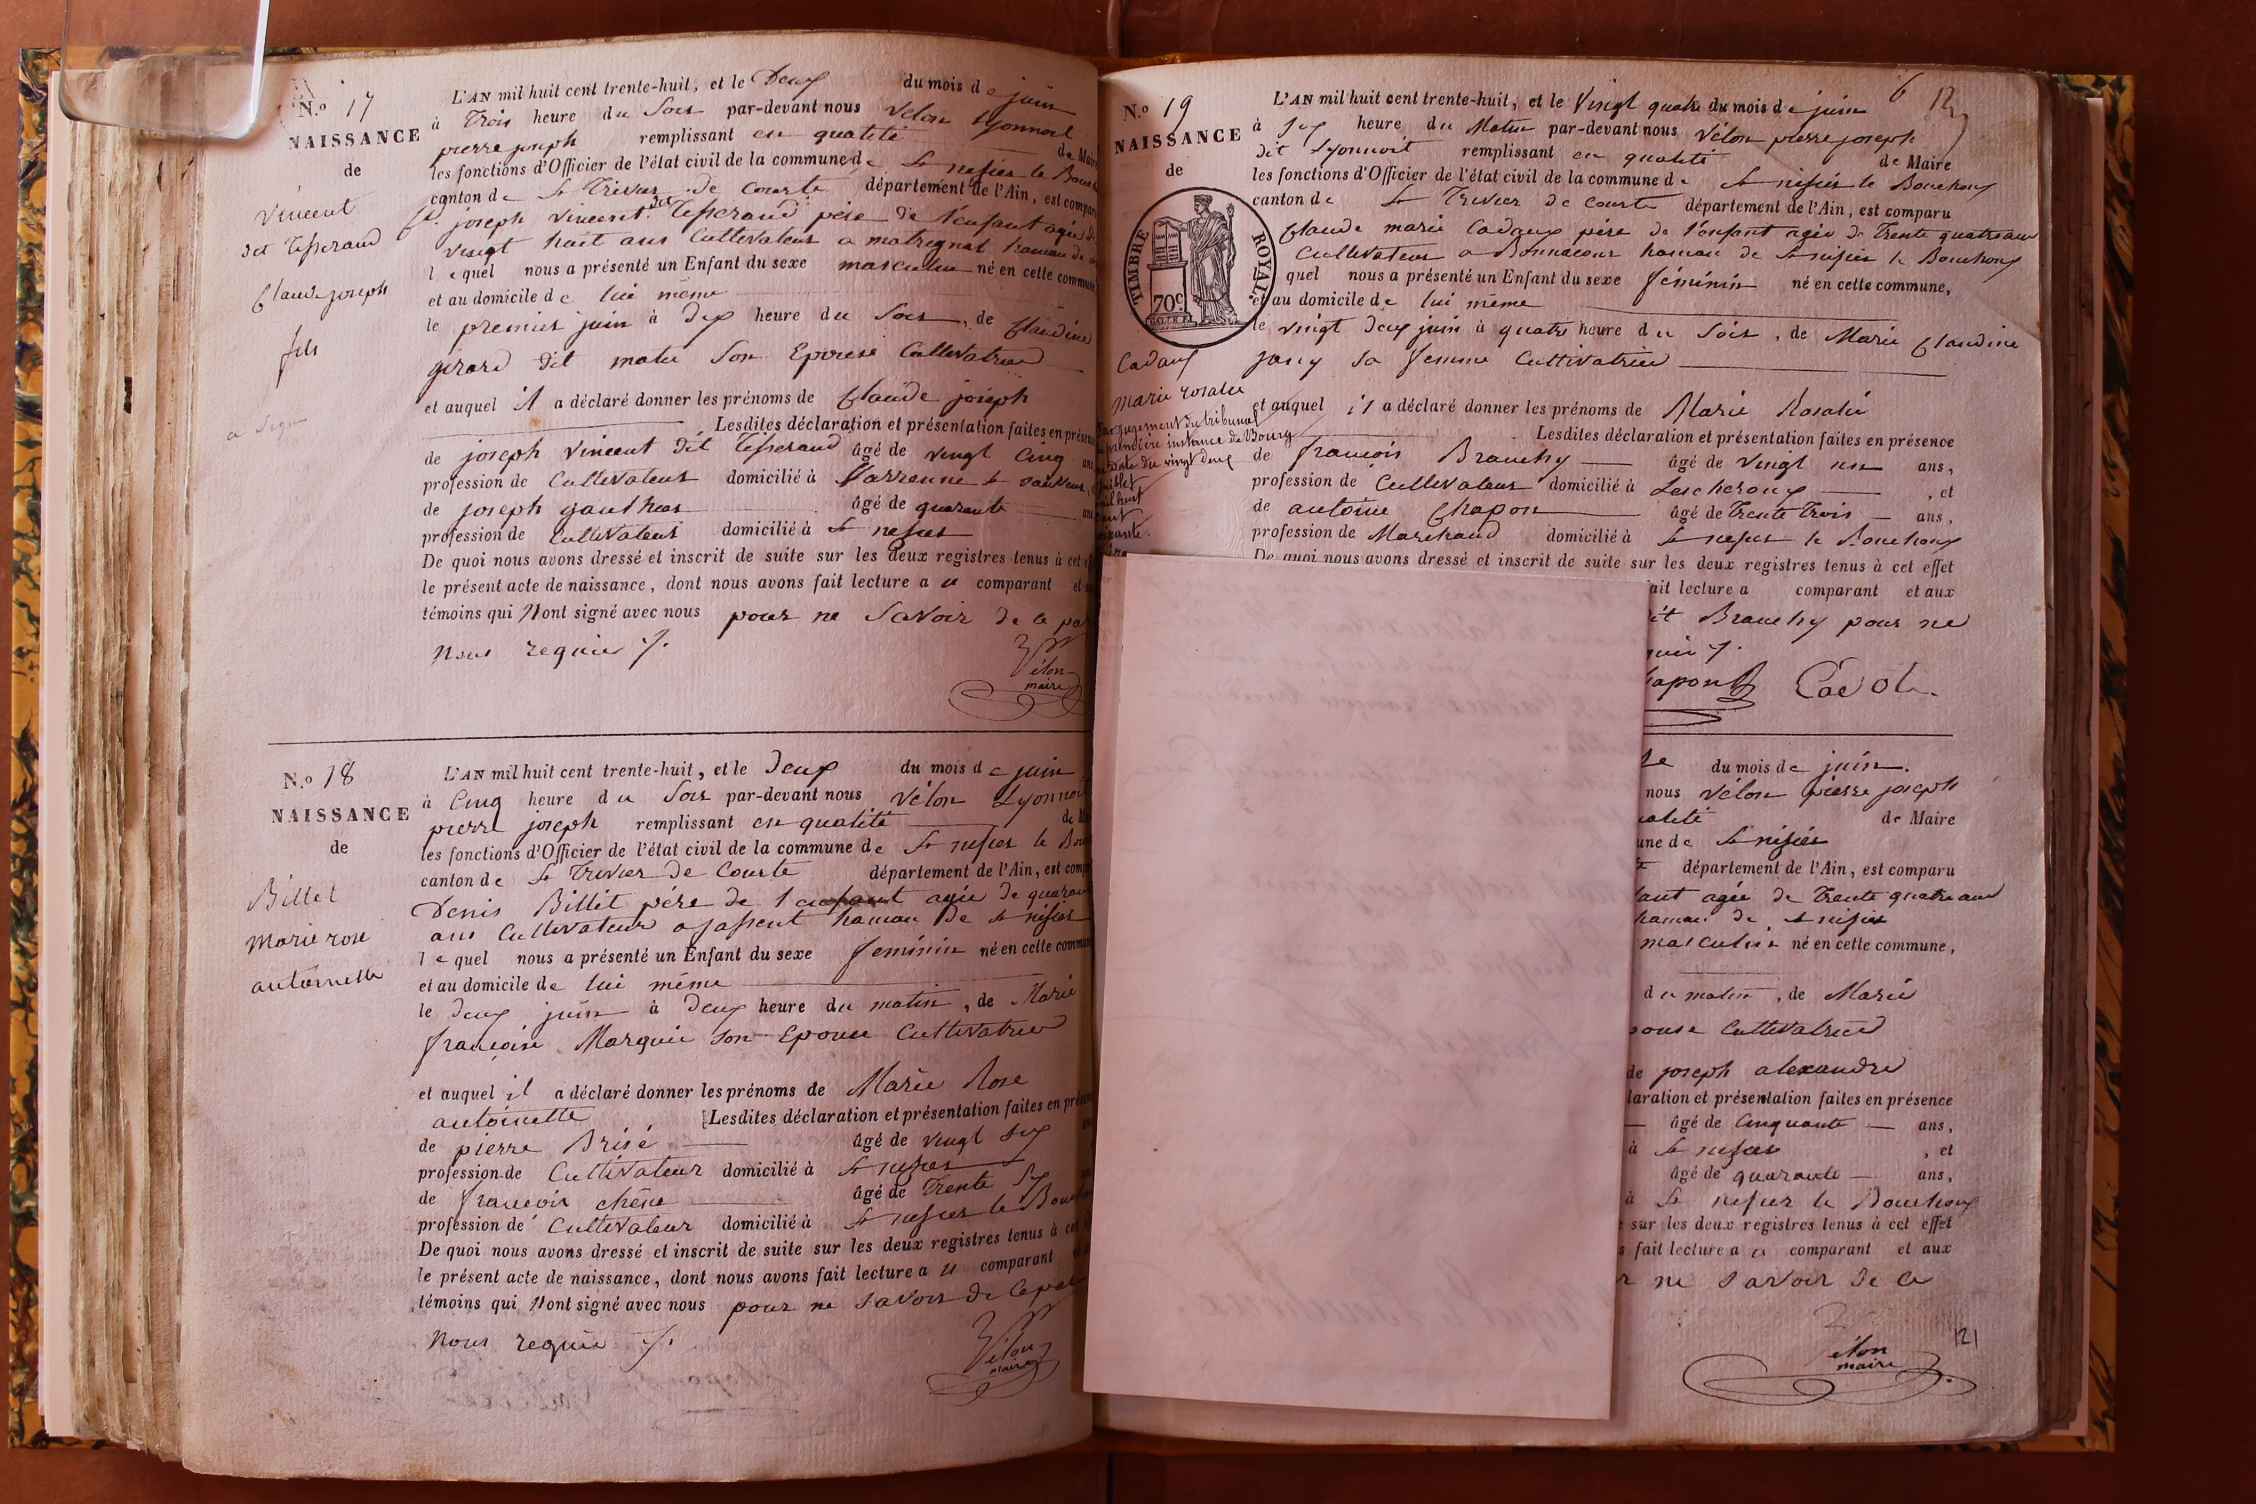 N.º 17
NAISSANCE
de
Vincent
dit Tisserand
Claude joseph
fils
L'AN mil huit cent trente-huit, et le Deux du mois de juin
à Trois heure du Soir par-devant nous Vélon Lyonnoit
pierre joseph remplissant en qualité de Maire
les fonctions d'Officier de l'état civil de la commune de St nisier le Bouch
canton de St Trivier de Courte département de l'Ain, est comparu
joseph Vincent dit Tisserand père de l'enfant agée de
vingt huit ans Cultivateur a matregnat hamau de
lequel nous a présenté un Enfant du sexe masculin né en cette commune
et au domicile de lui même
le premier juin à dix heure du Soir, de Claudine
girard dit matu Son Epouse Cultivatrice
et auquel il a déclaré donner les prénoms de Claude joseph
Lesdites déclaration et présentation faites en présence
de joseph Vincent dit Tisserand âgé de vingt Cinq ans
profession de Cultivateur domicilié à Varrenne St sauveur,
de joseph gauthier âgé de quarante ans
profession de Cultivateur domicilié à St nisier
De quoi nous avons dressé et inscrit de suite sur les deux registres tenus à cet
le présent acte de naissance, dont nous avons fait lecture a u comparant et
témoins qui Nont signé avec nous pour ne Savoir de ce
nous requis ./.
Vélon
maire
N.º 18
NAISSANCE
de
Billet
Marie rose
antoinette
L'AN mil huit cent trente-huit, et le deux du mois de juin
à Cinq heure du Soir par-devant nous Vélon Lyonnoi
pierre joseph remplissant en qualité
les fonctions d'Officier de l'état civil de la commune de St nisier le Bou
canton de St Trivier de Courte département de l'Ain, est comp
Denis Billet père de l'enfant agée de quaran
ans Cultivateur a hamau de St nisier
lequel nous a présenté un Enfant du sexe feminin né en cette commune
et au domicile de lui même
le deux juin à deux heure du matin, de Marie
françoise Marguin son Epouse Cultivatrice
et auquel il a déclaré donner les prénoms de Marie Rose
antoinette Lesdites déclaration et présentation faites en
de pierre Brisé âgé de vingt six
profession de Cultivateur domicilié à St nisier
de francois chêne âgé de Trente six
profession de Cultivateur domicilié à St nisier le Bou
De quoi nous avons dressé et inscrit de suite sur les deux registres tenus à cet
le présent acte de naissance, dont nous avons fait lecture a u comparant
témoins qui Nont signé avec nous pour ne savoir de ce
nous requis ./.
Vélon
maire
6
N.º 19
NAISSANCE
de
TIMBRE ROYAL
70c
Cadaux
Marie rosalie
par jugement du tribunal
première instance de Bourg
date du vingt deux
L'AN mil huit cent trente-huit, et le Vingt quatre du mois de juin
à six heure du Matin par-devant nous Vélon pierre joseph
dit Lyonnoit remplissant en qualité de Maire
les fonctions d'Officier de l'état civil de la commune de St nisier le Bouchoux
canton de St Trivier de Courte département de l'Ain, est comparu
Claude marie Cadaux père de l'enfant agée de Trente quatre ans
Cultivateur a Bonnacour hamau de St nisier le Bouchoux
quel nous a présenté un Enfant du sexe féminin né en cette commune,
et au domicile de lui même
le vingt deux juin à quatre heure du Soir, de Marie Claudine
jany sa femme Cultivatrice
et auquel il a déclaré donner les prénoms de Marie Rosalie
Lesdites déclaration et présentation faites en présence
de francois Brauchy âgé de Vingt un ans,
profession de Cultivateur domicilié à Lescheroux, et
de antoine Chapon âgé de Trente Trois ans,
profession de Marchand domicilié à St nisier le Bouchoux
De quoi nous avons dressé et inscrit de suite sur les deux registres tenus à cet effet
ait lecture a comparant et aux
it Brauchy pour ne
uis ./.
hapon
du mois de juin.
nous Vélon pierre joseph
alité de Maire
une de St nisier
département de l'Ain, est comparu
fant agée de Trente quatre ans
hamau de St nisier
masculin né en cette commune,
du matin, de Marie
pouse Cultivatrice
de joseph alexandre
laration et présentation faites en présence
âgé de Cinquante ans,
à St nisier, et
âgé de quarante ans,
à St nisier le Bouchoux
sur les deux registres tenus à cet effet
fait lecture a u comparant et aux
r ne savoir de ce
121
Vélon
maire